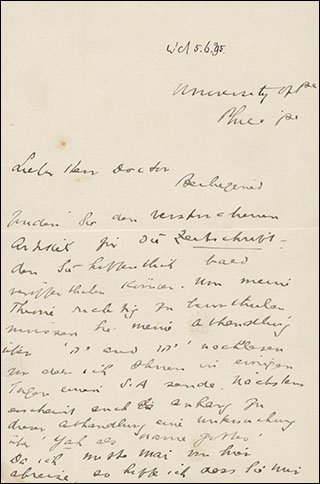 5.6.95
University of Pa
Phil Pa
Lieber Herr Doctor
Beiliegend
finden Sie den versprochenen
Artikel für die Zeitschrift
den Sie hoffentlich bald
veröffentlichen können. Um meine
Theorie richtig zu
müssen Sie meine Abhandlung
über und nachlesen
von der ich Ihnen in einigen
Tagen einen S.A sende. Nächstens
erscheint auch als anhang zu
dieser Abhandlung eine untersuchung
über "Jah als name gottes"
Da ich mai von hier
abreise, so hoffe ich dass Sie mir